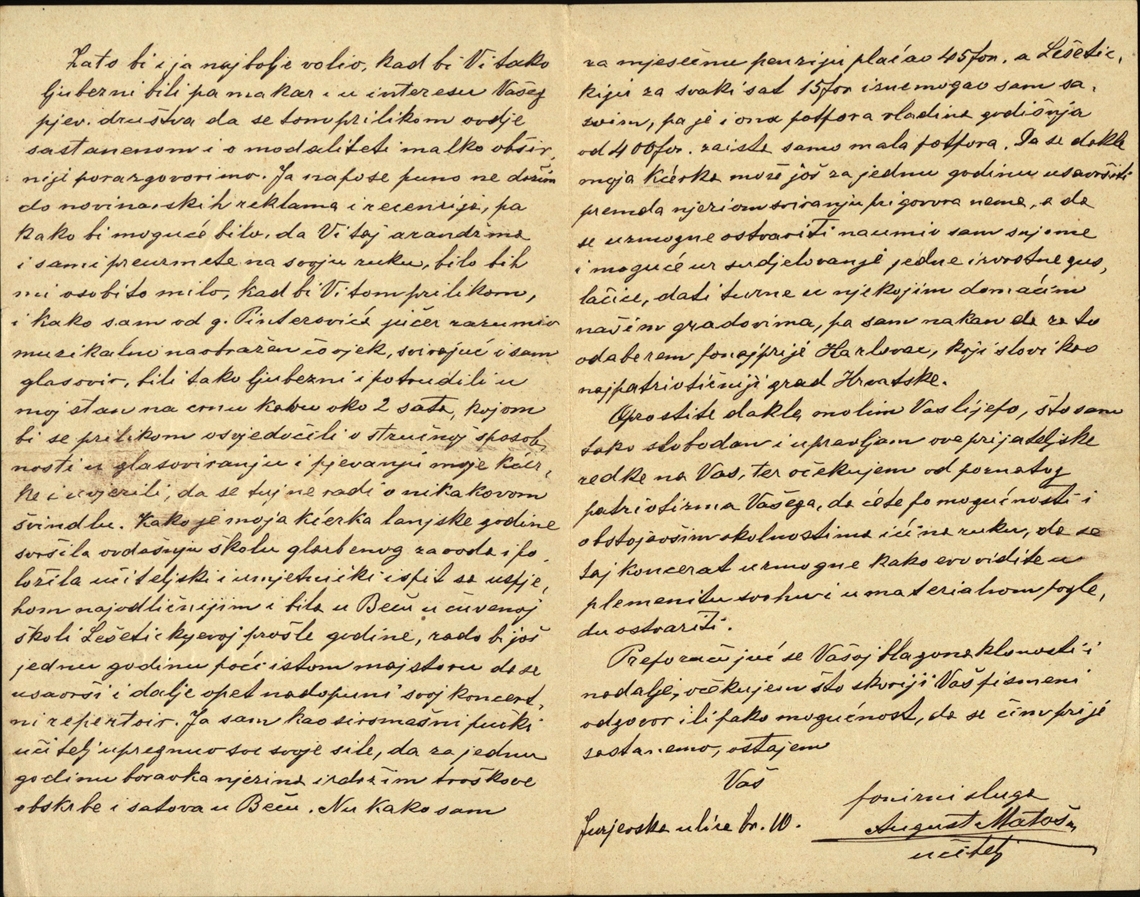 Zato bi i ja najbolje volio, kad bi Vi tako
ljubezni bili pa makar i u interesu Vašeg
pjev. društva da se tom prilikom ovdje
sastanemo i o modaliteti malko obšir,
niji porazgovorimo. Ja napose puno ne držim
do novinarskih reklama i recenzija, pa
kako bi moguće bilo, da Vi taj arandžma
i sami preuzmete na svoju ruku, bilo bih
mi osobito milo, kad bi Vi tom prilikom,
i kako sam od g. Pinterovića jučer razumio
muzikalno naobražen čovjek, svirajuć i sam
glasovir, bili tako ljubezni i potrudili u
moj stan na crnu kavu oko 2 sata, kojom
bi se prilikom osvjedočili o stručnoj sposob,
nosti u glasoviranju i pjevanju moje kćer,
ke i uvjerili, da se tuj ne radi o nikakovom
švindlu. Kako je moja kćerka lanjske godine
svršila ovdašnju školu glazbenog zavoda i po,
ložila učiteljski i umjetnički ispit sa uspje,
hom najodličnijim i bila u Beču u čuvenoj
školi Lešetickyevoj prošle godine, rado bi još
jednu godinu poći istom majstoru da se
usavrši i dalje opet nadopuni svoj koncert,
ni repertoir. Ja sam kao siromašni pučki
učitelj upregnuo sve svoje sile, da za jednu
godinu boravka njezina izdržim troškove
obskrbe i satova u Beču. Nu kako sam
za mjesečnu penziju plaćao 45 for. a Lešetic,
kiju za svaki sat 15 for iznemogao sam sa,
svim, pa je i ona potpora vladina godišnja
od 400 for. zaista samo mala potpora. Da se dakle
moja kćerka može još za jednu godinu usavršiti
premda njezinom sviranju prigovora nema, a da
se uzmogne ostvariti naumio sam snjome
i moguće uz sudjelovanje jedne izvrstne gus,
lačice, dati turne u njekojim domaćim
našim gradovima, pa sam nakan da za to
odaberem ponajprije Karlovac, koji slovi kao
najpatriotičniji grad Hrvatske.
Oprostite dakle, molim Vas lijepo, što sam
tako slobodan i upravljam ove prijateljske
redke na Vas, ter očekujem od poznatog
patriotizma Vašega, da ćete po mogućnosti i
obstojećim okolnostima ići na ruku, da se
taj koncerat uzmogne kako evo vidite u
plemenitu svrhu i u materialnom pogle,
du ostvariti.
Preporačujuć se Vašoj blagonaklonosti i
nadalje, očekujem što skoriji Vaš pismeni
odgovor ili pako mogućnost, da se čim prije
sastanemo, ostajem
Vaš
ponizni sluga
Jurjevska ulica br. 10.
August Matoš
učitelj